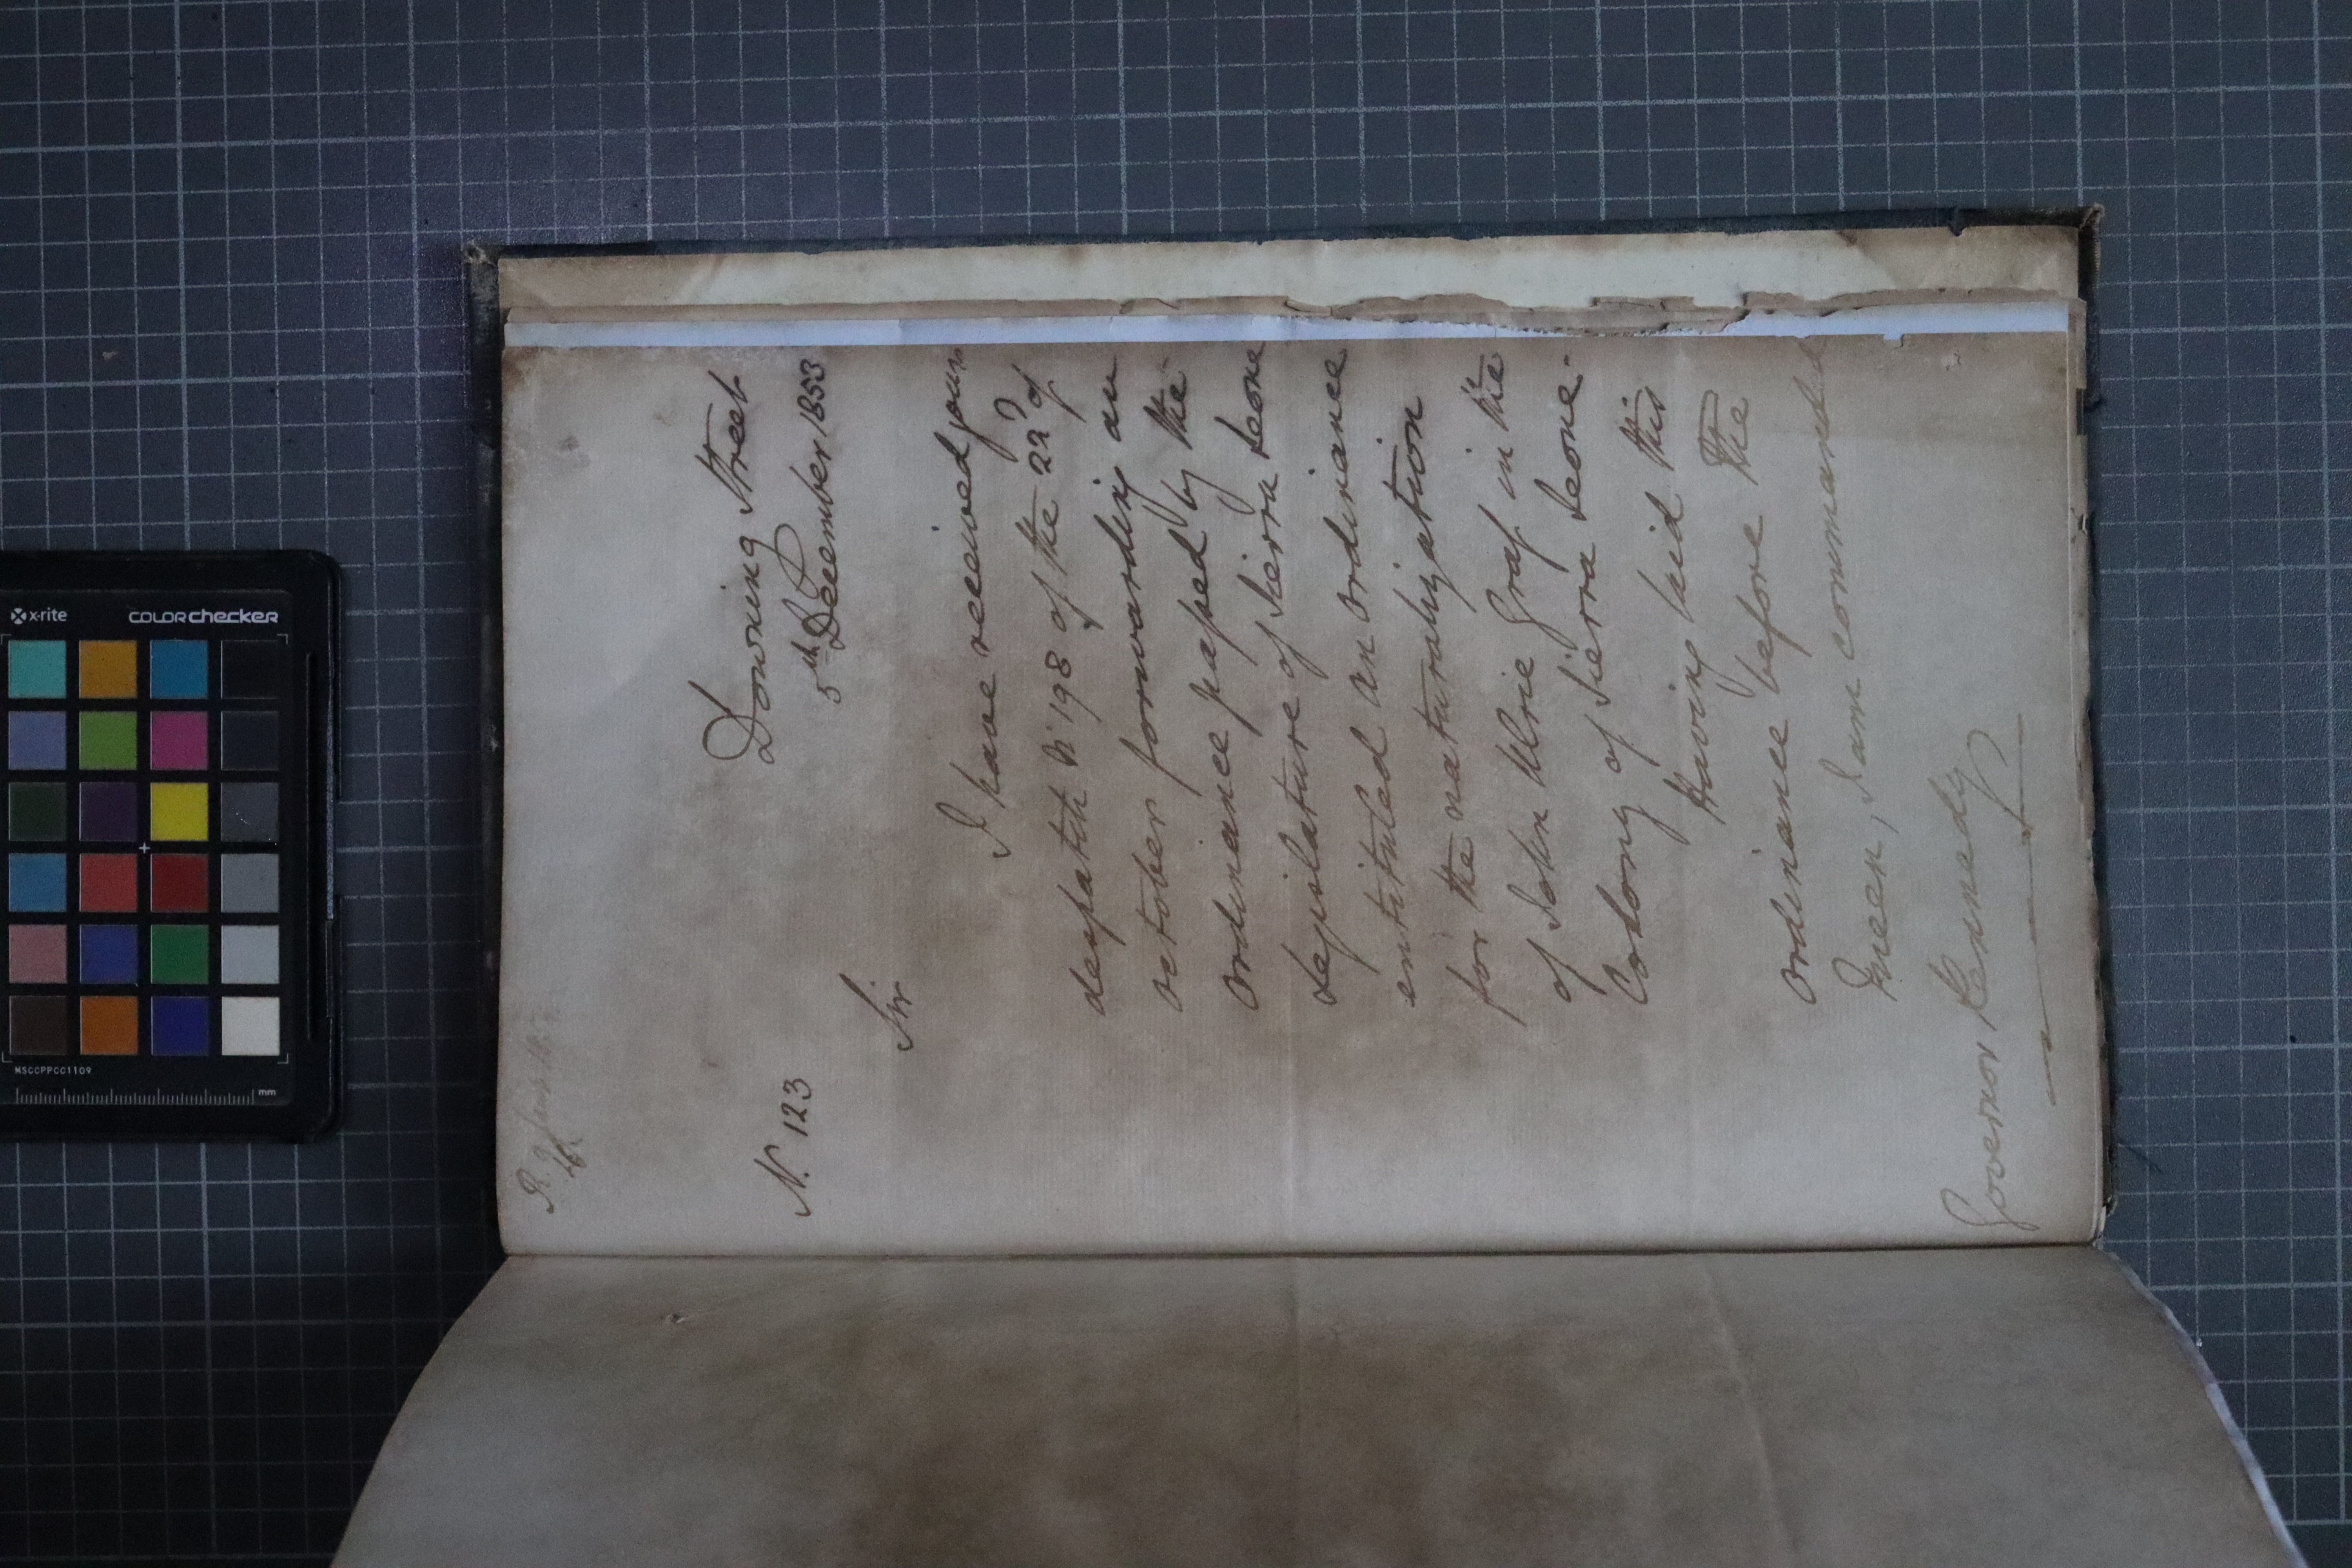 Downing Street
5th December 1853
N. 123
Sir
I have received your
despatch No 198 of the 22d of
October forwarding an
Ordinance passed by the
Legislature of Sierra Leone
entituled an Ordinance
for the naturalization
of John Ulric Graf in the
Colony of Sierra Leone.
Having laid this
Ordinance before The
Queen, I am commanded
Governor Kennedy
x-rite
colorchecker
MSCCPPCC1109
mm